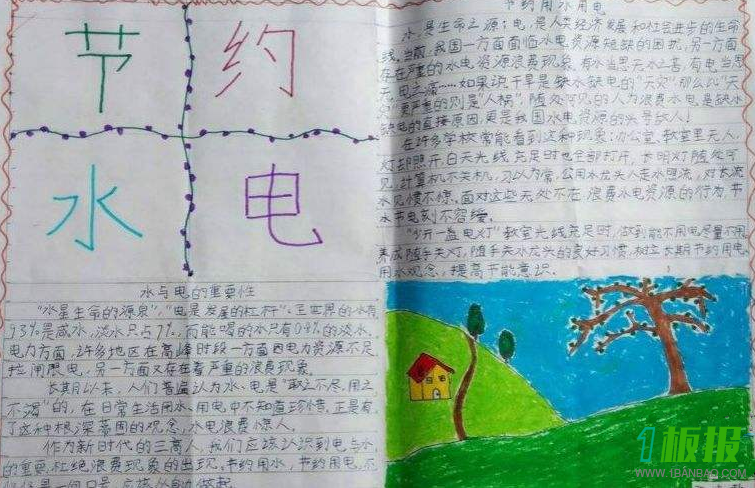 节 约
水 电
节约用水用电
水,是生命之源;电,是人类经济发展和社会进步的生命
线。当前,我国一方面面临水电资源短缺的困扰,另一方面
存在严重的水电资源浪费现象,有水当思无水之苦,有电当思
无电之痛……如果说干旱是缺水缺电的“天灾”那么比“天
灾”更严重的则是“人祸”,随处可见的人为浪费水电,是缺水
缺电的直接原因,更是我国水电资源的头号敌人!
在许多学校常能看到这种现象:办公室、教室里无人,
灯却照开,白天光线充足时也全部打开,长明灯随处可
见,计算机不关机,习以为常,公用水龙头人走水照流,对长流
水见惯不惊。面对这些无处不在浪费水电资源的行为,节
水节电刻不容缓。
“少开一盏电灯”教室光线充足时,做到能不用电尽量不用,
养成随手关灯,随手关水龙头的良好习惯,树立长期节约用电
用水观念,提高节能意识。
水与电的重要性
“水是生命的源泉”,“电是发展的杠杆”。全世界的水有
93%是咸水,淡水只占7%,而能喝的水只有0.8%的淡水。
电力方面,许多地区在高峰时段一方面因电力资源不足
拉闸限电,另一方面又存在着严重的浪费现象。
长期以来,人们普遍认为水、电是“取之不尽,用之
不竭”的,在日常生活用水、用电中不知道珍惜,正是有
了这种根深蒂固的观念,水电浪费惊人。
作为新时代的三高人,我们应该认识到电与水
的重要,杜绝浪费现象的出现。节约用水,节约用电,不
是一句口号
板报
WWW.1BANBAO.COM